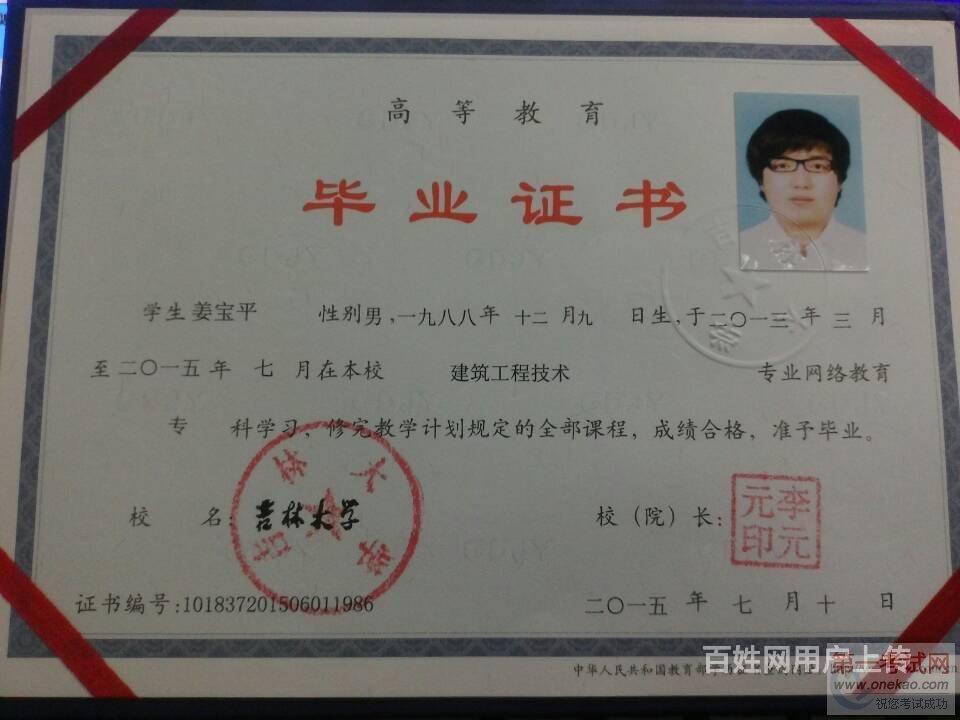 高等教育
毕业证书
学生 姜宝平 性别 男，一九八八年 十二 月九 日生，于二〇一三年 三 月
至二〇一五年 七 月在本校 建筑工程技术 专业网络教育
专 科学习，修完教学计划规定的全部课程，成绩合格，准予毕业。
校 名：吉林大学 校（院）长：
吉林大学
李元元印
证书编号：101837201506011986 二〇一五 年 七 月 十 日
中华人民共和国教育部
百姓网用户上传
第一考试网
www.onekao.com
祝您考试成功